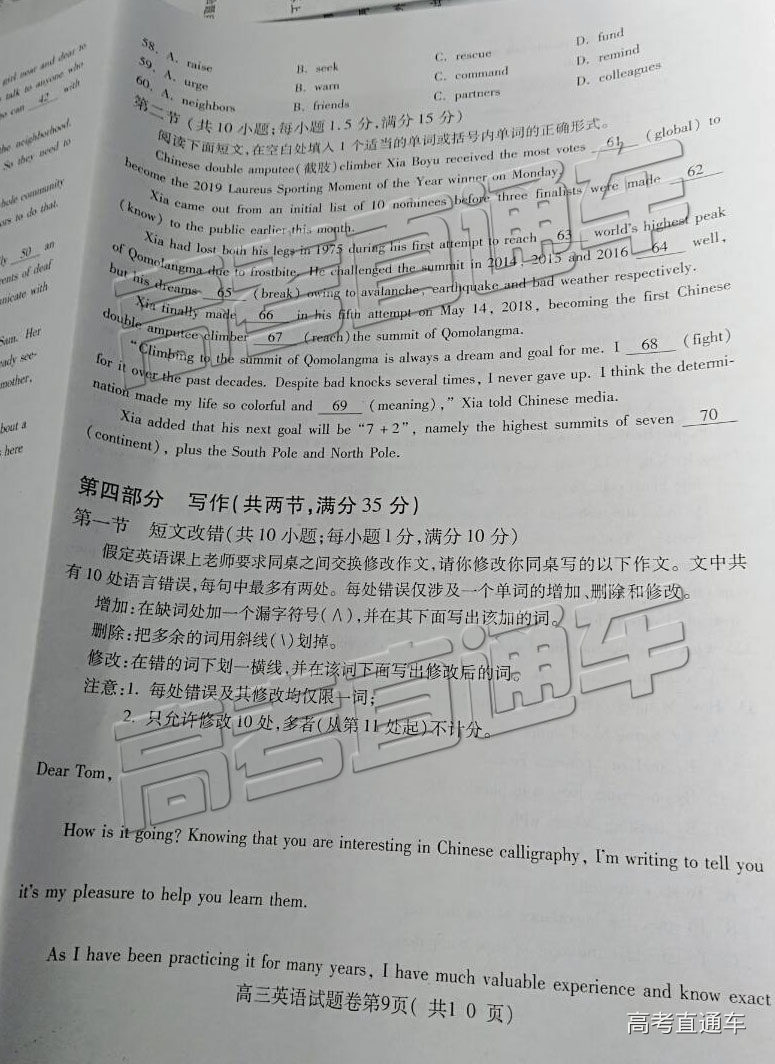 girl now and dear to
talk to anyone who
42 with
the neighborhood.
So they need to
whole community
ors to do that.
50 an
ents of deaf
unicate with
Sam. Her
ady see-
mother,
bout a
here
58. A. raise B. seek C. rescue D. fund
59. A. urge B. warn C. command D. remind
60. A. neighbors B. friends C. partners D. colleagues
第二节(共10小题;每小题1.5分,满分15分)
阅读下面短文,在空白处填入1个适当的单词或括号内单词的正确形式。
Chinese double amputee(截肢)climber Xia Boyu received the most votes 61 (global) to
become the 2019 Laureus Sporting Moment of the Year winner on Monday.
Xia came out from an initial list of 10 nominees before three finalists were made 62
(know) to the public earlier this month.
Xia had lost both his legs in 1975 during his first attempt to reach 63 world's highest peak
of Qomolangma due to frostbite. He challenged the summit in 2014, 2015 and 2016 64 well,
but his dreams 65 (break) owing to avalanche, earthquake and bad weather respectively.
Xia finally made 66 in his fifth attempt on May 14, 2018, becoming the first Chinese
double amputee climber 67 (reach)the summit of Qomolangma.
"Climbing to the summit of Qomolangma is always a dream and goal for me. I 68 (fight)
for it over the past decades. Despite bad knocks several times, I never gave up. I think the determi-
nation made my life so colorful and 69 (meaning)," Xia told Chinese media.
Xia added that his next goal will be "7+2", namely the highest summits of seven 70
(continent), plus the South Pole and North Pole.
第四部分 写作(共两节,满分35分)
第一节 短文改错(共10小题;每小题1分,满分10分)
假定英语课上老师要求同桌之间交换修改作文,请你修改你同桌写的以下作文。文中共
有10处语言错误,每句中最多有两处。每处错误仅涉及一个单词的增加、删除和修改。
增加:在缺词处加一个漏字符号(∧),并在其下面写出该加的词。
删除:把多余的词用斜线(\)划掉。
修改:在错的词下划一横线,并在该词下面写出修改后的词。
注意:1. 每处错误及其修改均仅限一词;
2. 只允许修改10处,多者(从第11处起)不计分。
Dear Tom,
How is it going? Knowing that you are interesting in Chinese calligraphy, I'm writing to tell you
it's my pleasure to help you learn them.
As I have been practicing it for many years, I have much valuable experience and know exact
高三英语试题卷第9页( 共1 0 页)
高考直通车
高考直通车
高考直通车